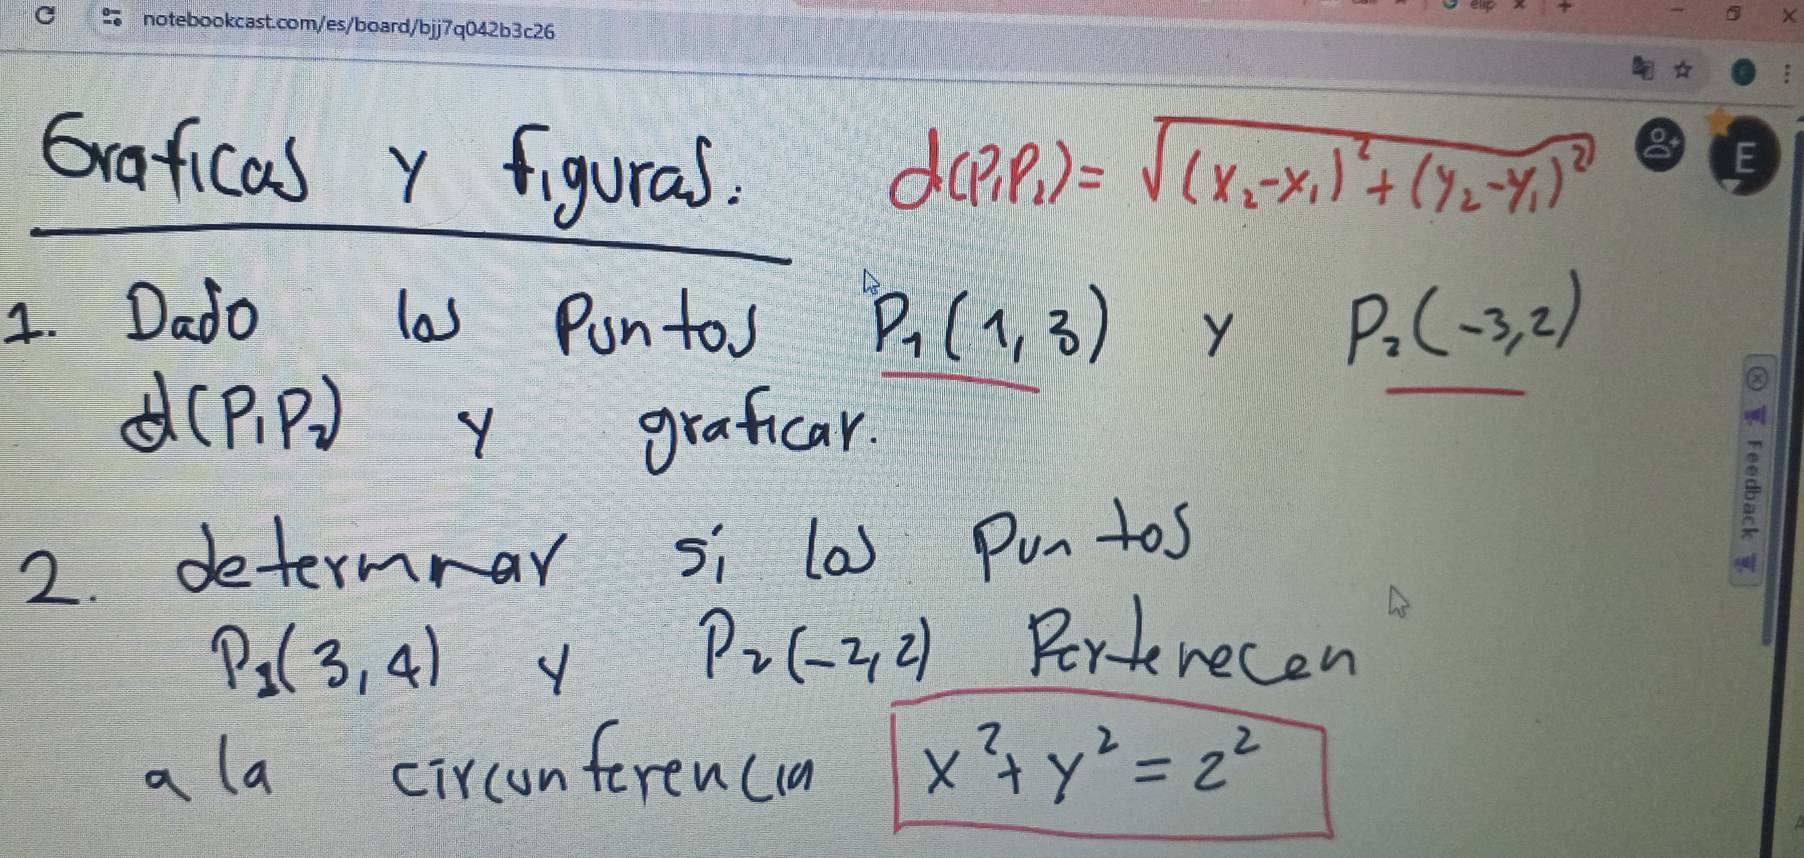 notebookcast.com/es/board/bjj7q042b3c26
elip
Graficas y figuras.
d(P₁P₂)= √(x₂-x₁)²+(y₂-y₁)²
E
1. Dado los Puntos P₁(1,3) y P₂(-3,2)
d(P₁P₂) y graficar.
2. determinar si los Puntos
P₁(3,4) y P₂(-2,2) Pertenecen
a la circunferencia x²+y²=2²
Feedback